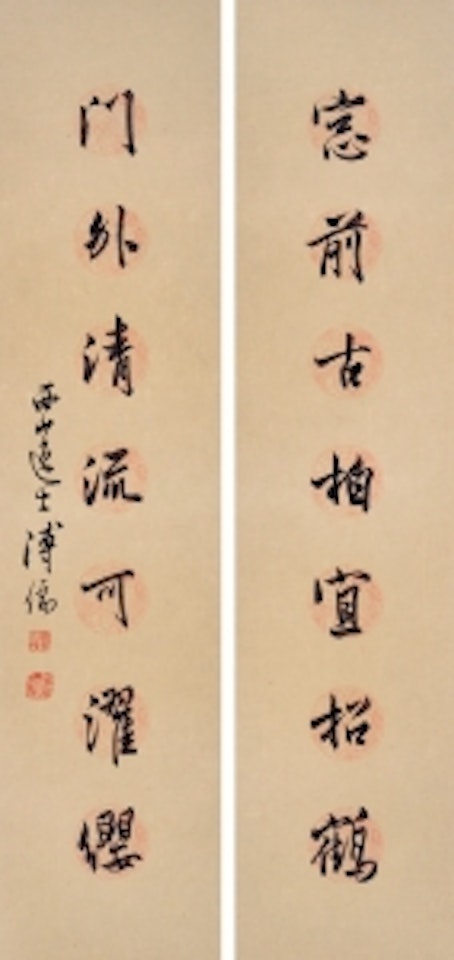 窓前古柏宜招鶴
門外清流可濯纓
西山逸士溥儒